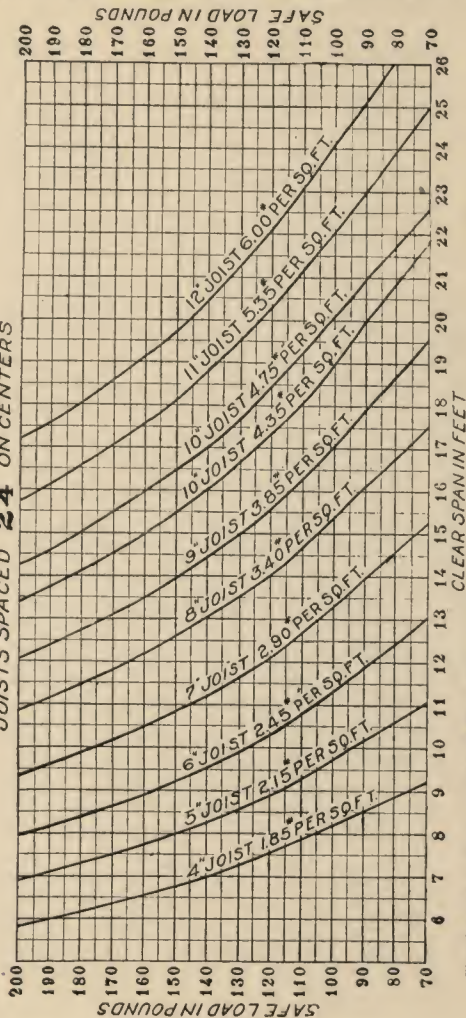 JOISTS SPACED 24 ON CENTERS
SAFE LOAD IN POUNDS
200 190 180 170 160 150 140 130 120 110 100 90 80 70
12" JOIST 6.00# PER SQ.FT.
11" JOIST 5.35# PER SQ.FT.
10" JOIST 4.75# PER SQ.FT.
10" JOIST 4.35# PER SQ.FT.
9" JOIST 3.85# PER SQ.FT.
8" JOIST 3.40# PER SQ.FT.
7" JOIST 2.90# PER SQ.FT.
6" JOIST 2.45# PER SQ.FT.
5" JOIST 2.15# PER SQ.FT.
4" JOIST 1.85# PER SQ.FT.
6 7 8 9 10 11 12 13 14 15 16 17 18 19 20 21 22 23 24 25 26
CLEAR SPAN IN FEET
200 190 180 170 160 150 140 130 120 110 100 90 80 70
SAFE LOAD IN POUNDS